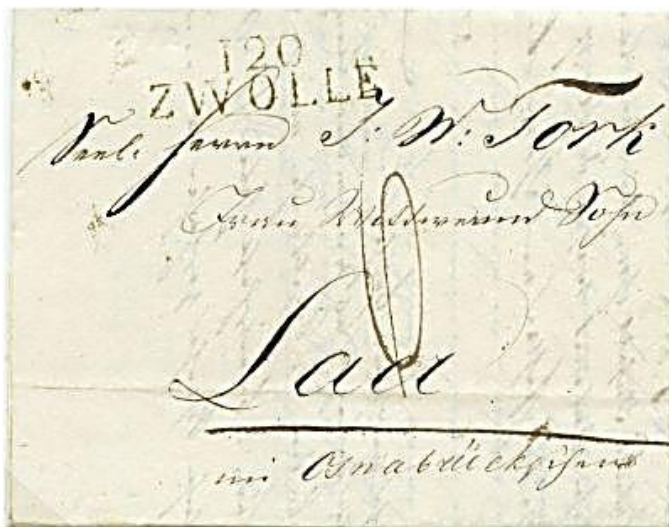 120
ZWOLLE
Seel. Herrn J: W: Tork
Frau Wittwe und Sohn
Laer
im Osnabrückschen